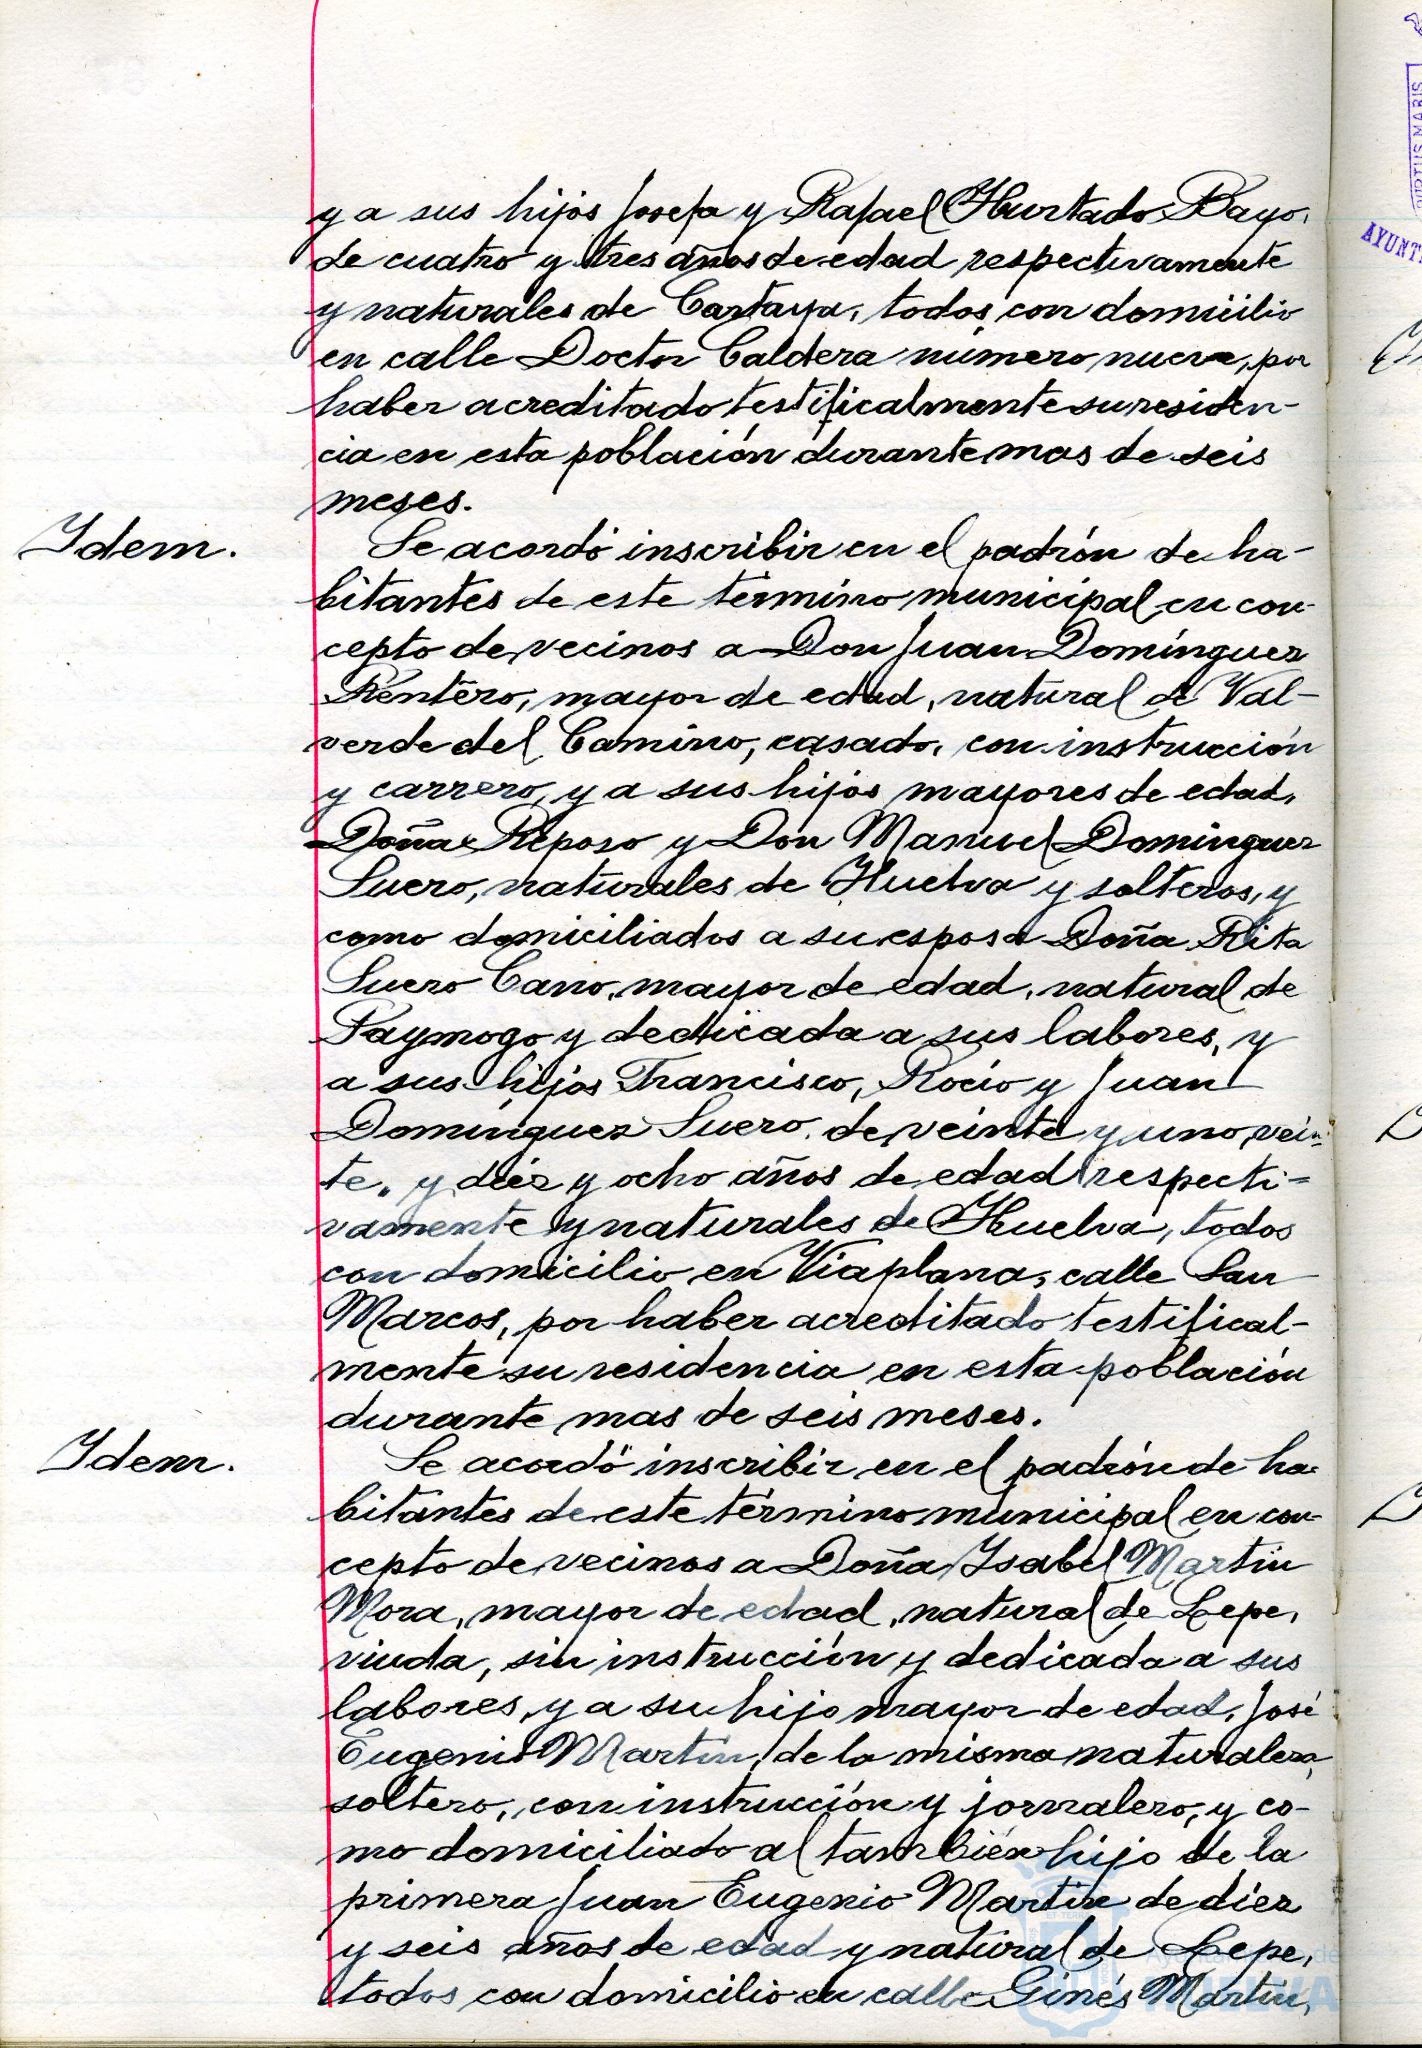 y a sus hijos Josefa y Rafael Hurtado Bayo,
de cuatro y tres años de edad respectivamente
y naturales de Cartaya, todos con domicilio
en calle Doctor Caldera número nueve, por
haber acreditado testificalmente su residen-
cia en esta población durante mas de seis
meses.
Ydem.
Se acordó inscribir en el padrón de ha-
bitantes de este término municipal en con-
cepto de vecinos a Don Juan Domínguez
Rentero, mayor de edad, natural de Val-
verde del Camino, casado, con instrucción
y carrero, y a sus hijos mayores de edad,
Doña Reposo y Don Manuel Domínguez
Suero, naturales de Huelva y solteros, y
como domiciliados a su esposa Doña Rita
Suero Cano, mayor de edad, natural de
Paymogo y dedicada a sus labores, y
a sus hijos Francisco, Rocío y Juan
Domínguez Suero, de veinte y uno, vein-
te, y diez y ocho años de edad respecti-
vamente y naturales de Huelva, todos
con domicilio en Viaplana, calle San
Marcos, por haber acreditado testifical-
mente su residencia en esta población
durante mas de seis meses.
Ydem.
Se acordó inscribir en el padrón de ha-
bitantes de este término municipal en con-
cepto de vecinos a Doña Ysabel Martín
Mora, mayor de edad, natural de Lepe,
viuda, sin instrucción y dedicada a sus
labores, y a su hijo mayor de edad, José
Eugenio Martín, de la misma naturaleza,
soltero, con instrucción y jornalero, y co-
mo domiciliado al también hijo de la
primera Juan Eugenio Martín de diez
y seis años de edad y natural de Lepe,
todos con domicilio en calle Ginés Martín,